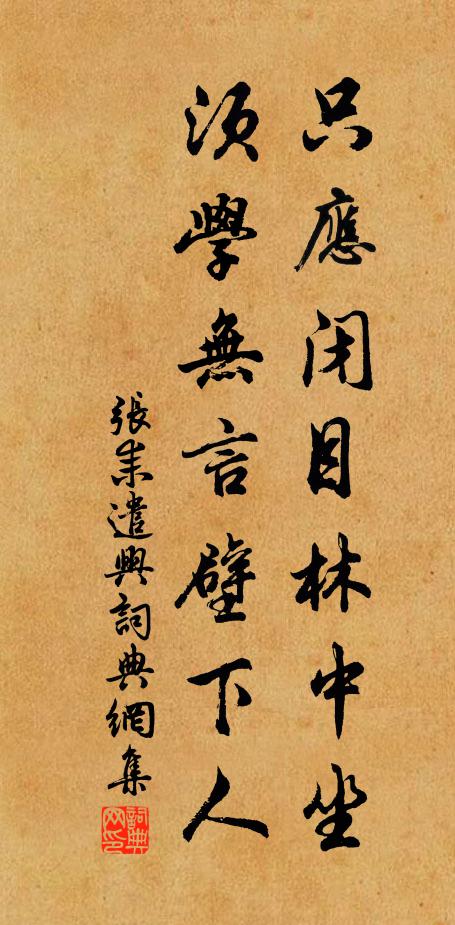 只應閉目林中坐
須學無言壁下人
張耒遣興詞典網集
詞典
网印